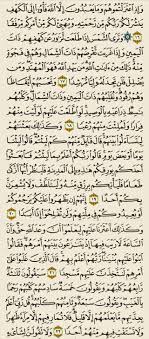 وَإِذِ ٱعْتَزَلْتُمُوهُمْ وَمَا يَعْبُدُونَ إِلَّا ٱللَّهَ فَأْوُۥٓا۟ إِلَى ٱلْكَهْفِ
يَنشُرْ لَكُمْ رَبُّكُم مِّن رَّحْمَتِهِۦ وَيُهَيِّئْ لَكُم مِّنْ أَمْرِكُم مِّرْفَقًا
۞ وَتَرَى ٱلشَّمْسَ إِذَا طَلَعَت تَّزَٰوَرُ عَن كَهْفِهِمْ ذَاتَ
ٱلْيَمِينِ وَإِذَا غَرَبَت تَّقْرِضُهُمْ ذَاتَ ٱلشِّمَالِ وَهُمْ فِى فَجْوَةٍ
مِّنْهُ ذَٰلِكَ مِنْ ءَايَٰتِ ٱللَّهِ مَن يَهْدِ ٱللَّهُ فَهُوَ ٱلْمُهْتَدِ وَمَن
يُضْلِلْ فَلَن تَجِدَ لَهُۥ وَلِيًّا مُّرْشِدًا ١٧ وَتَحْسَبُهُمْ أَيْقَاظًا
وَهُمْ رُقُودٌ وَنُقَلِّبُهُمْ ذَاتَ ٱلْيَمِينِ وَذَاتَ ٱلشِّمَالِ وَكَلْبُهُم
بَٰسِطٌ ذِرَاعَيْهِ بِٱلْوَصِيدِ لَوِ ٱطَّلَعْتَ عَلَيْهِمْ لَوَلَّيْتَ مِنْهُمْ
فِرَارًا وَلَمُلِئْتَ مِنْهُمْ رُعْبًا ١٨ وَكَذَٰلِكَ بَعَثْنَٰهُمْ
لِيَتَسَآءَلُوا۟ بَيْنَهُمْ قَالَ قَآئِلٌ مِّنْهُمْ كَمْ لَبِثْتُمْ قَالُوا۟ لَبِثْنَا
يَوْمًا أَوْ بَعْضَ يَوْمٍ قَالُوا۟ رَبُّكُمْ أَعْلَمُ بِمَا لَبِثْتُمْ فَٱبْعَثُوٓا۟
أَحَدَكُم بِوَرِقِكُمْ هَٰذِهِۦٓ إِلَى ٱلْمَدِينَةِ فَلْيَنظُرْ أَيُّهَآ
أَزْكَىٰ طَعَامًا فَلْيَأْتِكُم بِرِزْقٍ مِّنْهُ وَلْيَتَلَطَّفْ وَلَا يُشْعِرَنَّ
بِكُمْ أَحَدًا ١٩ إِنَّهُمْ إِن يَظْهَرُوا۟ عَلَيْكُمْ يَرْجُمُوكُمْ
أَوْ يُعِيدُوكُمْ فِى مِلَّتِهِمْ وَلَن تُفْلِحُوٓا۟ إِذًا أَبَدًا ٢٠
وَكَذَٰلِكَ أَعْثَرْنَا عَلَيْهِمْ لِيَعْلَمُوٓا۟ أَنَّ وَعْدَ ٱللَّهِ حَقٌّ وَأَنَّ
ٱلسَّاعَةَ لَا رَيْبَ فِيهَآ إِذْ يَتَنَٰزَعُونَ بَيْنَهُمْ أَمْرَهُمْ فَقَالُوا۟
ٱبْنُوا۟ عَلَيْهِم بُنْيَٰنًا رَّبُّهُمْ أَعْلَمُ بِهِمْ قَالَ ٱلَّذِينَ غَلَبُوا۟ عَلَىٰٓ
أَمْرِهِمْ لَنَتَّخِذَنَّ عَلَيْهِم مَّسْجِدًا ٢١ سَيَقُولُونَ ثَلَٰثَةٌ
رَّابِعُهُمْ كَلْبُهُمْ وَيَقُولُونَ خَمْسَةٌ سَادِسُهُمْ كَلْبُهُمْ رَجْمًۢا
بِٱلْغَيْبِ وَيَقُولُونَ سَبْعَةٌ وَثَامِنُهُمْ كَلْبُهُمْ قُل رَّبِّىٓ أَعْلَمُ
بِعِدَّتِهِم مَّا يَعْلَمُهُمْ إِلَّا قَلِيلٌ فَلَا تُمَارِ فِيهِمْ إِلَّا مِرَآءً ظَٰهِرًا
وَلَا تَسْتَفْتِ فِيهِم مِّنْهُمْ أَحَدًا ٢٢ وَلَا تَقُولَنَّ لِشَا۟ىْءٍ